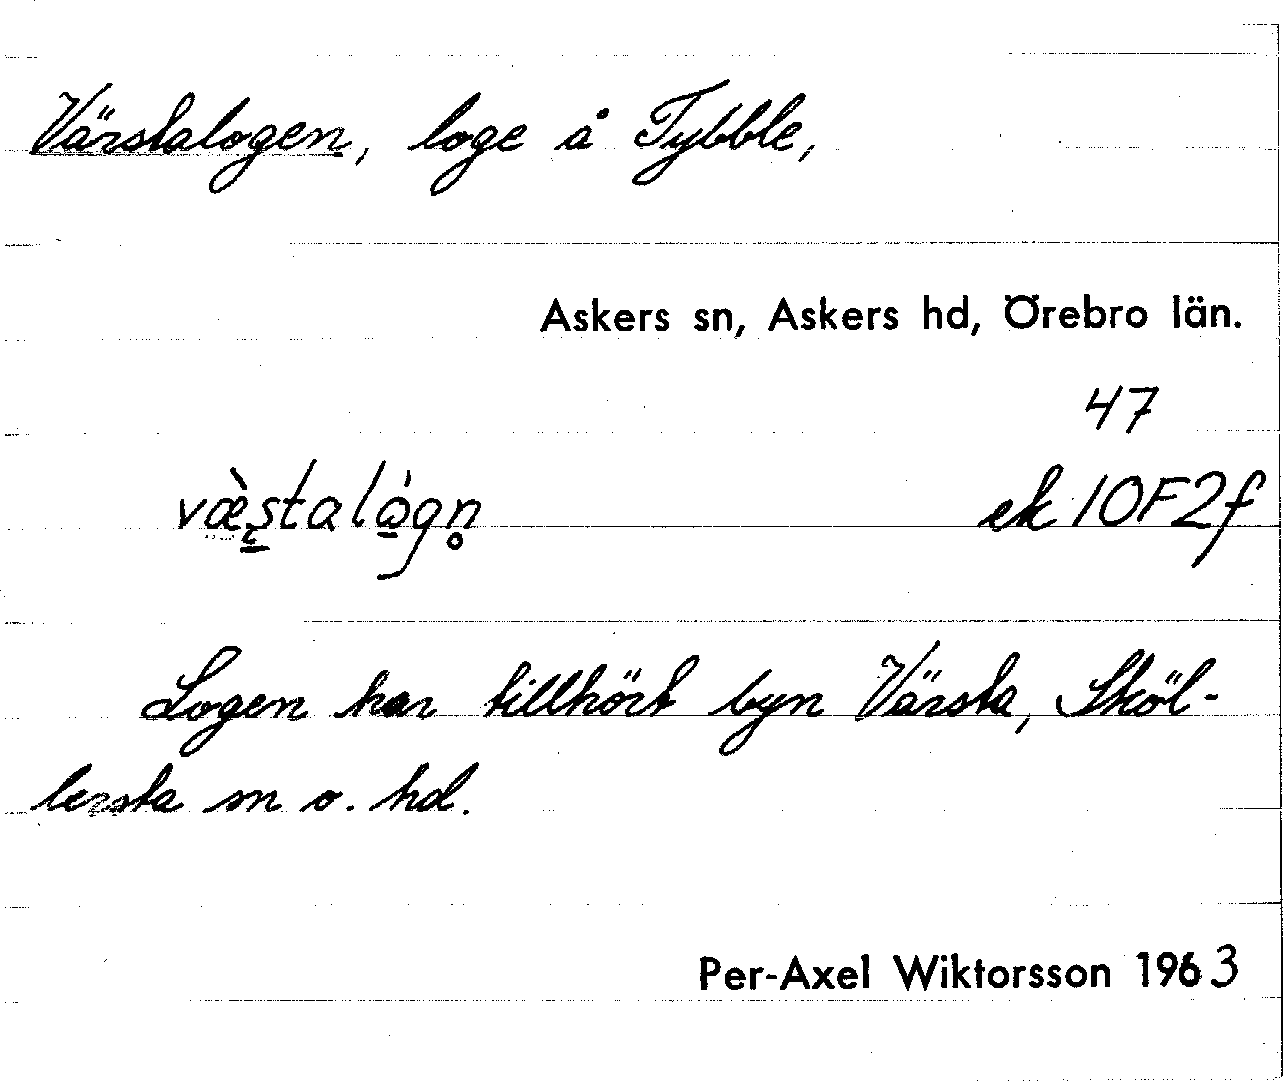 Värstalogen, loge å Tybble,
Askers sn, Askers hd, Örebro län.
47
væ̀s̠talɷ́gn̥ ek 10F2f
Logen har tillhört byn Värsta, Sköl-
lersta sn o. hd.
Per-Axel Wiktorsson 1963